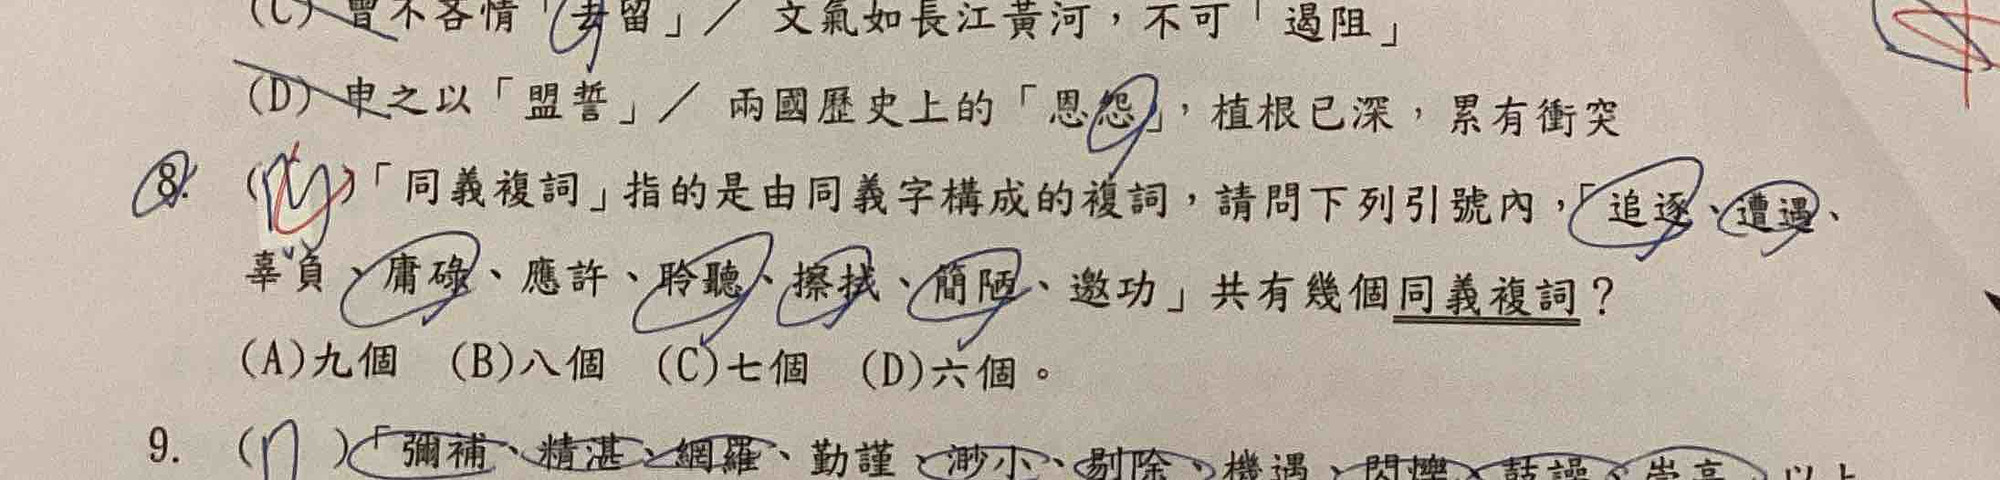 (C) 曾不吝情「去留」／ 文氣如長江黃河，不可「遏阻」
(D) 申之以「盟誓」／ 兩國歷史上的「恩怨」，植根已深，累有衝突
8. ( )「同義複詞」指的是由同義字構成的複詞，請問下列引號內，「追逐、遭遇、
辜負、庸碌、應許、聆聽、擦拭、簡陋、邀功」共有幾個同義複詞？
(A)九個 (B)八個 (C)七個 (D)六個。
9. ( )「彌補、精湛、網羅、勤謹、渺小、剔除、機遇、閃爍、鼓譟、崇高、以上